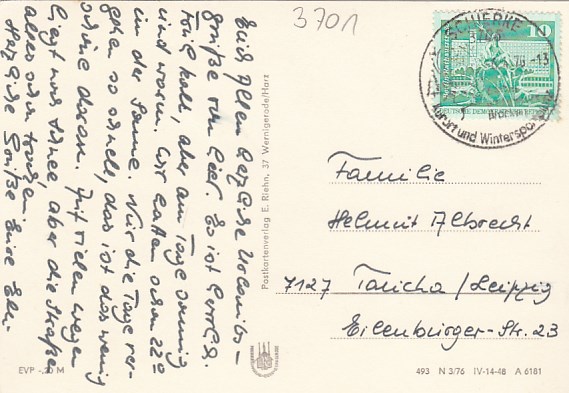 3701
Euch Allen herzliche Urlaubs-
grüße von hier. Es ist herrlich.
Früh kalt, aber am Tage sonnig
und warm. Wir hatten schon 22°
in der Sonne. Nur die Tage ver-
gehen so schnell, das ist das wenig
schöne daran. Auf vielen Wegen
liegt noch Schnee, aber die Straßen
alles schon trocken.
Herzliche Grüße Eure
Postkartenverlag E. Riehn, 37 Wernigerode/Harz
SCHIERKE
3705
-13
Kurort und Wintersport
10
DEUTSCHE DEMOKRATISCHE
Familie
Helmut Albrecht
7127 Taucha/Leipzig
Eilenburger-Str. 23
EVP -,20 M
493 N 3/76 IV-14-48 A 6181